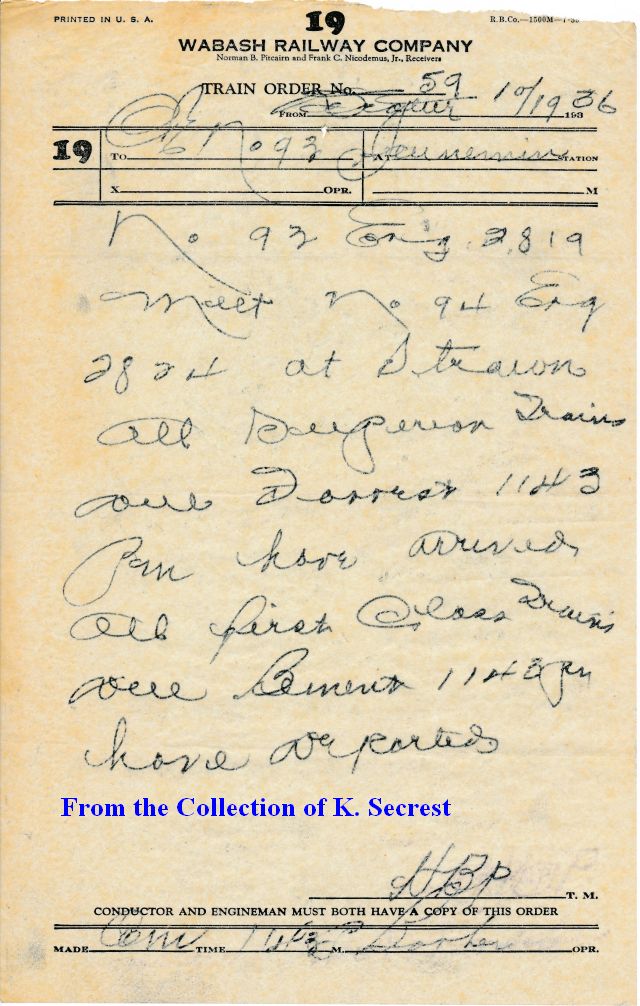 PRINTED IN U. S. A.
19
R.B.Co.—1500M—7-35
WABASH RAILWAY COMPANY
Norman B. Pitcairn and Frank C. Nicodemus, Jr., Receivers
TRAIN ORDER No. 59
FROM Decatur 10/19 1936
19
TO No 93 AT STATION
X OPR. M
No 93 Eng 2819
Meet No 94 Eng
2824 at Strawn
All Superior Trains
due Forrest 1143
Pm have arrived
All first Class Trains
due Bement 1143 pm
have departed
From the Collection of K. Secrest
HBP T. M.
CONDUCTOR AND ENGINEMAN MUST BOTH HAVE A COPY OF THIS ORDER
MADE Com TIME M. OPR.